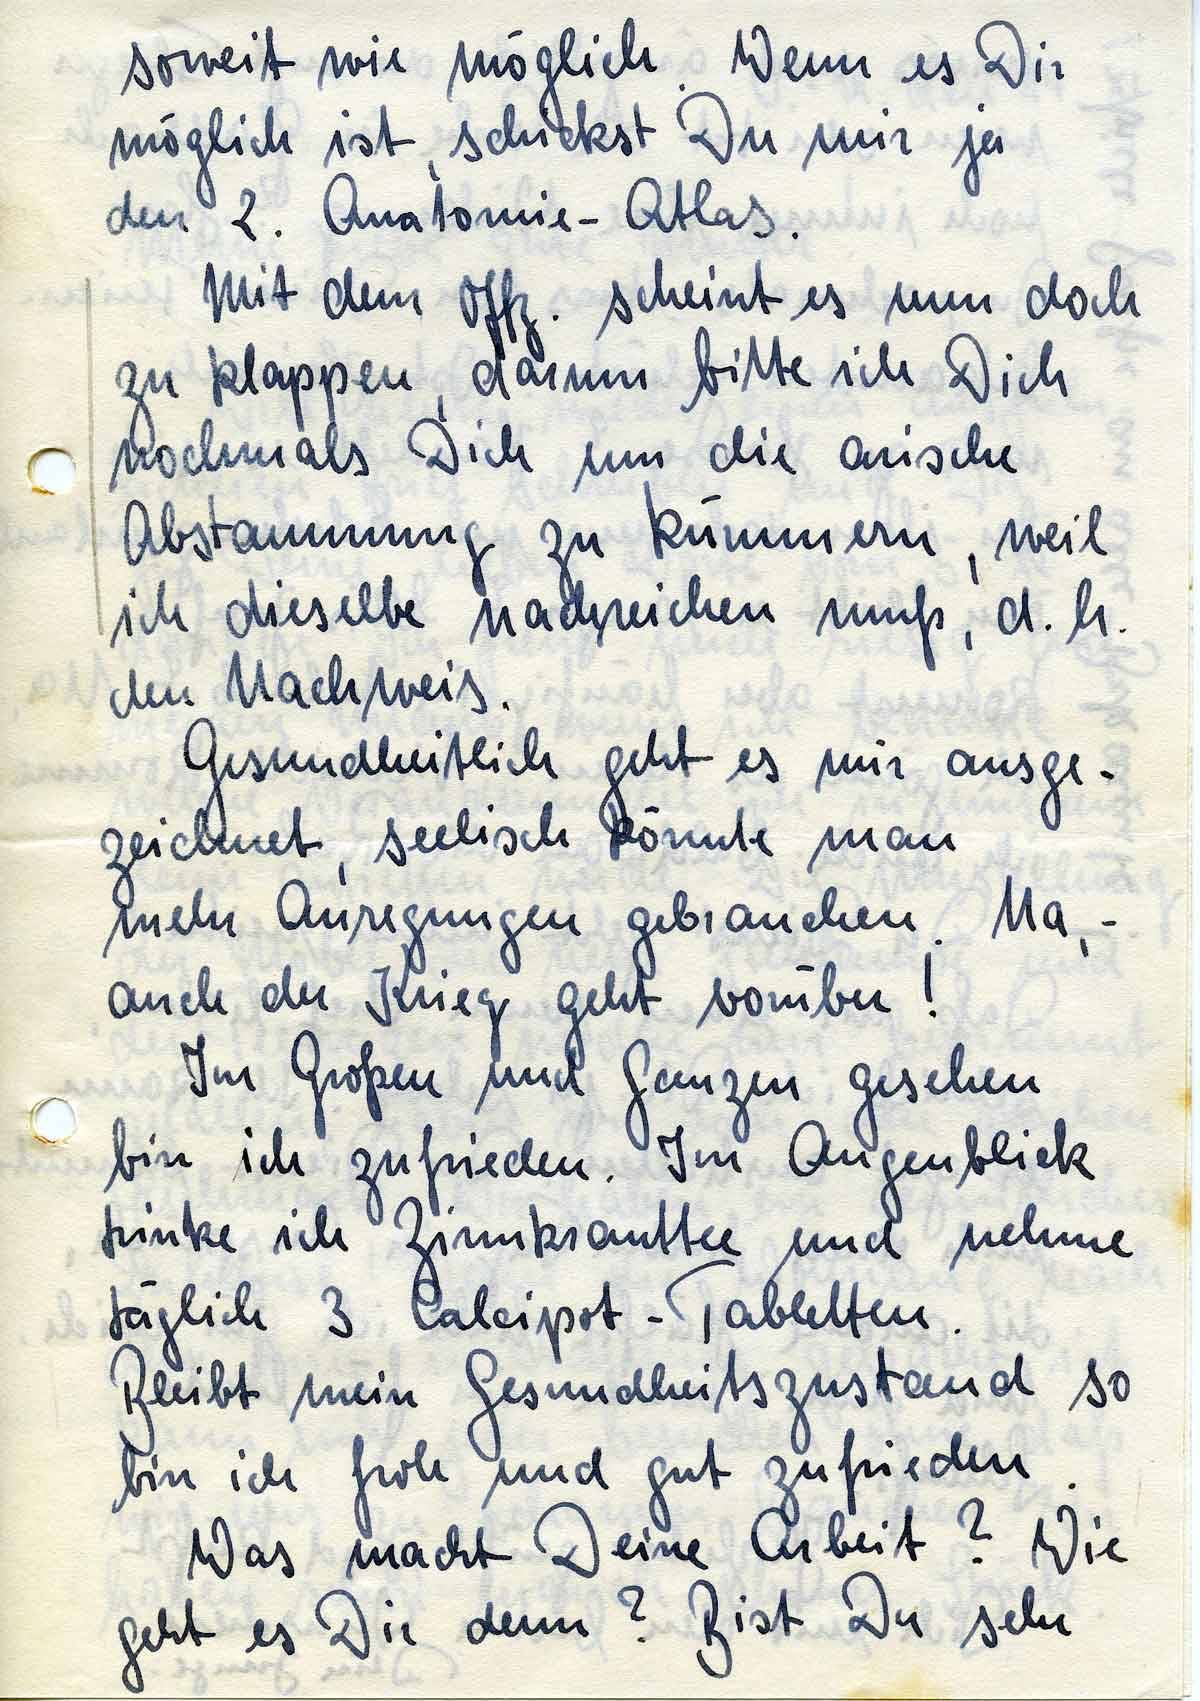 soweit wie möglich. Wenn es Dir
möglich ist, schickst Du mir ja
den 2. Anatomie-Atlas.
Mit dem Offz. scheint es nun doch
zu klappen, darum bitte ich Dich
nochmals Dich um die arische
Abstammung zu kümmern, weil
ich dieselbe nachreichen muß, d. h.
den Nachweis.
Gesundheitlich geht es mir ausge-
zeichnet, seelisch könnte man
mehr Anregungen gebrauchen. Na,-
auch der Krieg geht vorüber!
Im Großen und Ganzen gesehen
bin ich zufrieden. Im Augenblick
trinke ich Zinnkrauttee und nehme
täglich 3 Calcipot-Tabletten.
Bleibt mein Gesundheitszustand so
bin ich froh und gut zufrieden.
Was macht Deine Arbeit? Wie
geht es Dir denn? Bist Du sehr